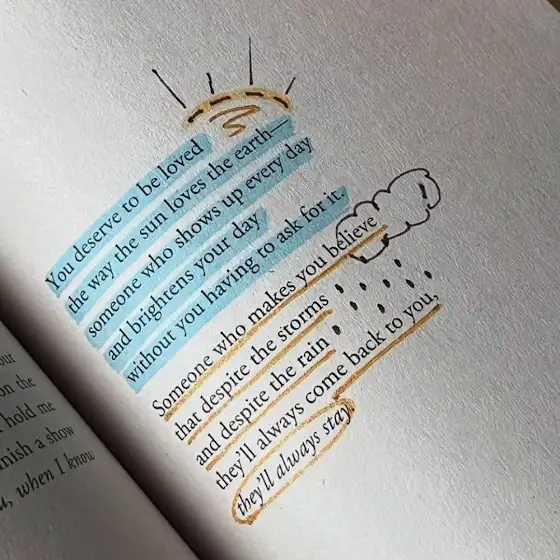 You deserve to be loved
the way the sun loves the earth—
someone who shows up every day
and brightens your day
without you having to ask for it.
Someone who makes you believe
that despite the storms
and despite the rain
they'll always come back to you,
they'll always stay.
on the
hold me
a show
when I know